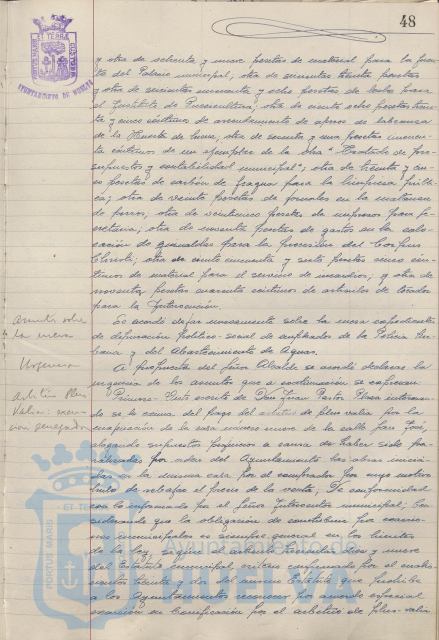 48
PORTUS MARIS ET TERRAE CUSTODIA
AYUNTAMIENTO DE HUELVA
y otra de setenta y nueve pesetas de material para la fuen-
te del Palacio municipal; otra de pesetas
y otra de seiscientas y ocho pesetas de leche para
el Instituto de Puericultura; otra de ciento ocho pesetas trein-
ta y cinco céntimos de arrendamiento de aperos de labranza
de la Huerta de ; otra de sesenta y una pesetas cincuen-
ta céntimos de un ejemplar de la obra "Tratado de pre-
supuestos y contabilidad municipal"; otra de treinta y cin-
co pesetas de carbón de fragua para la limpieza públi-
ca; otra de veinte pesetas de jornales en la matanza
de perros; otra de veinticinco pesetas de impresos para Se-
cretaría; otra de pesetas de gastos en la colo-
cación de para la procesión del Corpus
Christi; otra de ciento cincuenta y siete pesetas cinco cén-
timos de material para el servicio de incendios; y otra de
noventa pesetas cuarenta céntimos de artículos de
para la Intervención.
Asunto sobre
la mesa
Se acordó dejar nuevamente sobre la mesa
de depuración político-social de empleados de la Policía Ur-
bana y del Abastecimiento de Aguas.
Urgencia
A propuesta del Señor Alcalde se acordó declarar la
urgencia de los asuntos que a continuación se expresan
Arbitrio Plus
Valía: exen-
ción denegada
Primero. Visto escrito de Don Juan interesan-
do se le exima del pago del arbitrio de plus valía por la
enajenación de la casa número nueve de la calle San José,
alegando supuestos perjuicios a causa de haber sido pa-
ralizadas por orden del Ayuntamiento las obras inicia-
das en la misma casa por el comprador por cuyo motivo
hubo de rebajar el precio de la venta; De conformidad
con lo informado por el Señor Interventor municipal; Con-
siderando que la obligación de contribuir por exaccio-
nes municipales es siempre general en los límites
de la ley, según el artículo trescientos diez y nueve
del Estatuto municipal, criterio confirmado por el cuatro-
cientos treinta y dos del mismo Estatuto que prohíbe
a los Ayuntamientos reconocer por acuerdo especial
exención ni bonificación por el arbitrio de plus-valía